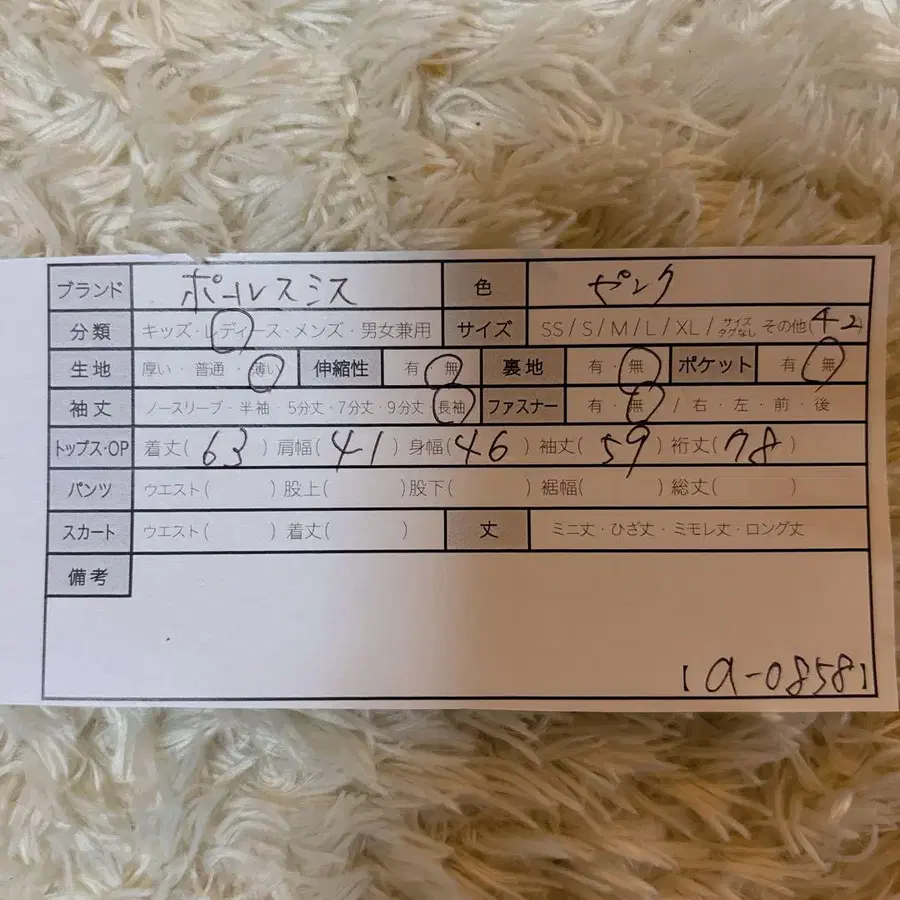 ブランド ポールスミス 色 ピンク
分類 キッズ・レディース・メンズ・男女兼用 サイズ SS / S / M / L / XL / サイズタグなし その他(42)
生地 厚い・普通・薄い 伸縮性 有・無 裏地 有・無 ポケット 有・無
袖丈 ノースリーブ・半袖・5分丈・7分丈・9分丈・長袖 ファスナー 有・無 / 右・左・前・後
トップス・OP 着丈(63) 肩幅(41) 身幅(46) 袖丈(59) 裄丈(78)
パンツ ウエスト( ) 股上( ) 股下( ) 裾幅( ) 総丈( )
スカート ウエスト( ) 着丈( ) 丈 ミニ丈・ひざ丈・ミモレ丈・ロング丈
備考
【a-0858】